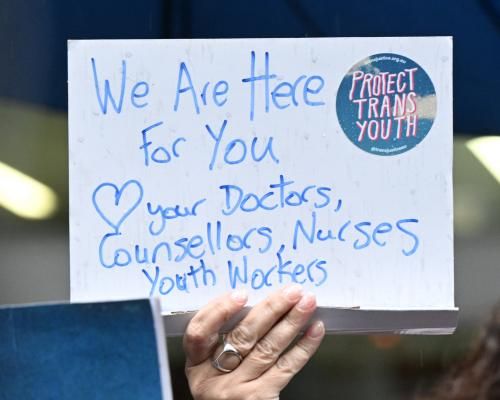 We Are Here
For You
♡ your Doctors,
Counsellors, Nurses
Youth Workers
PROTECT
TRANS
YOUTH